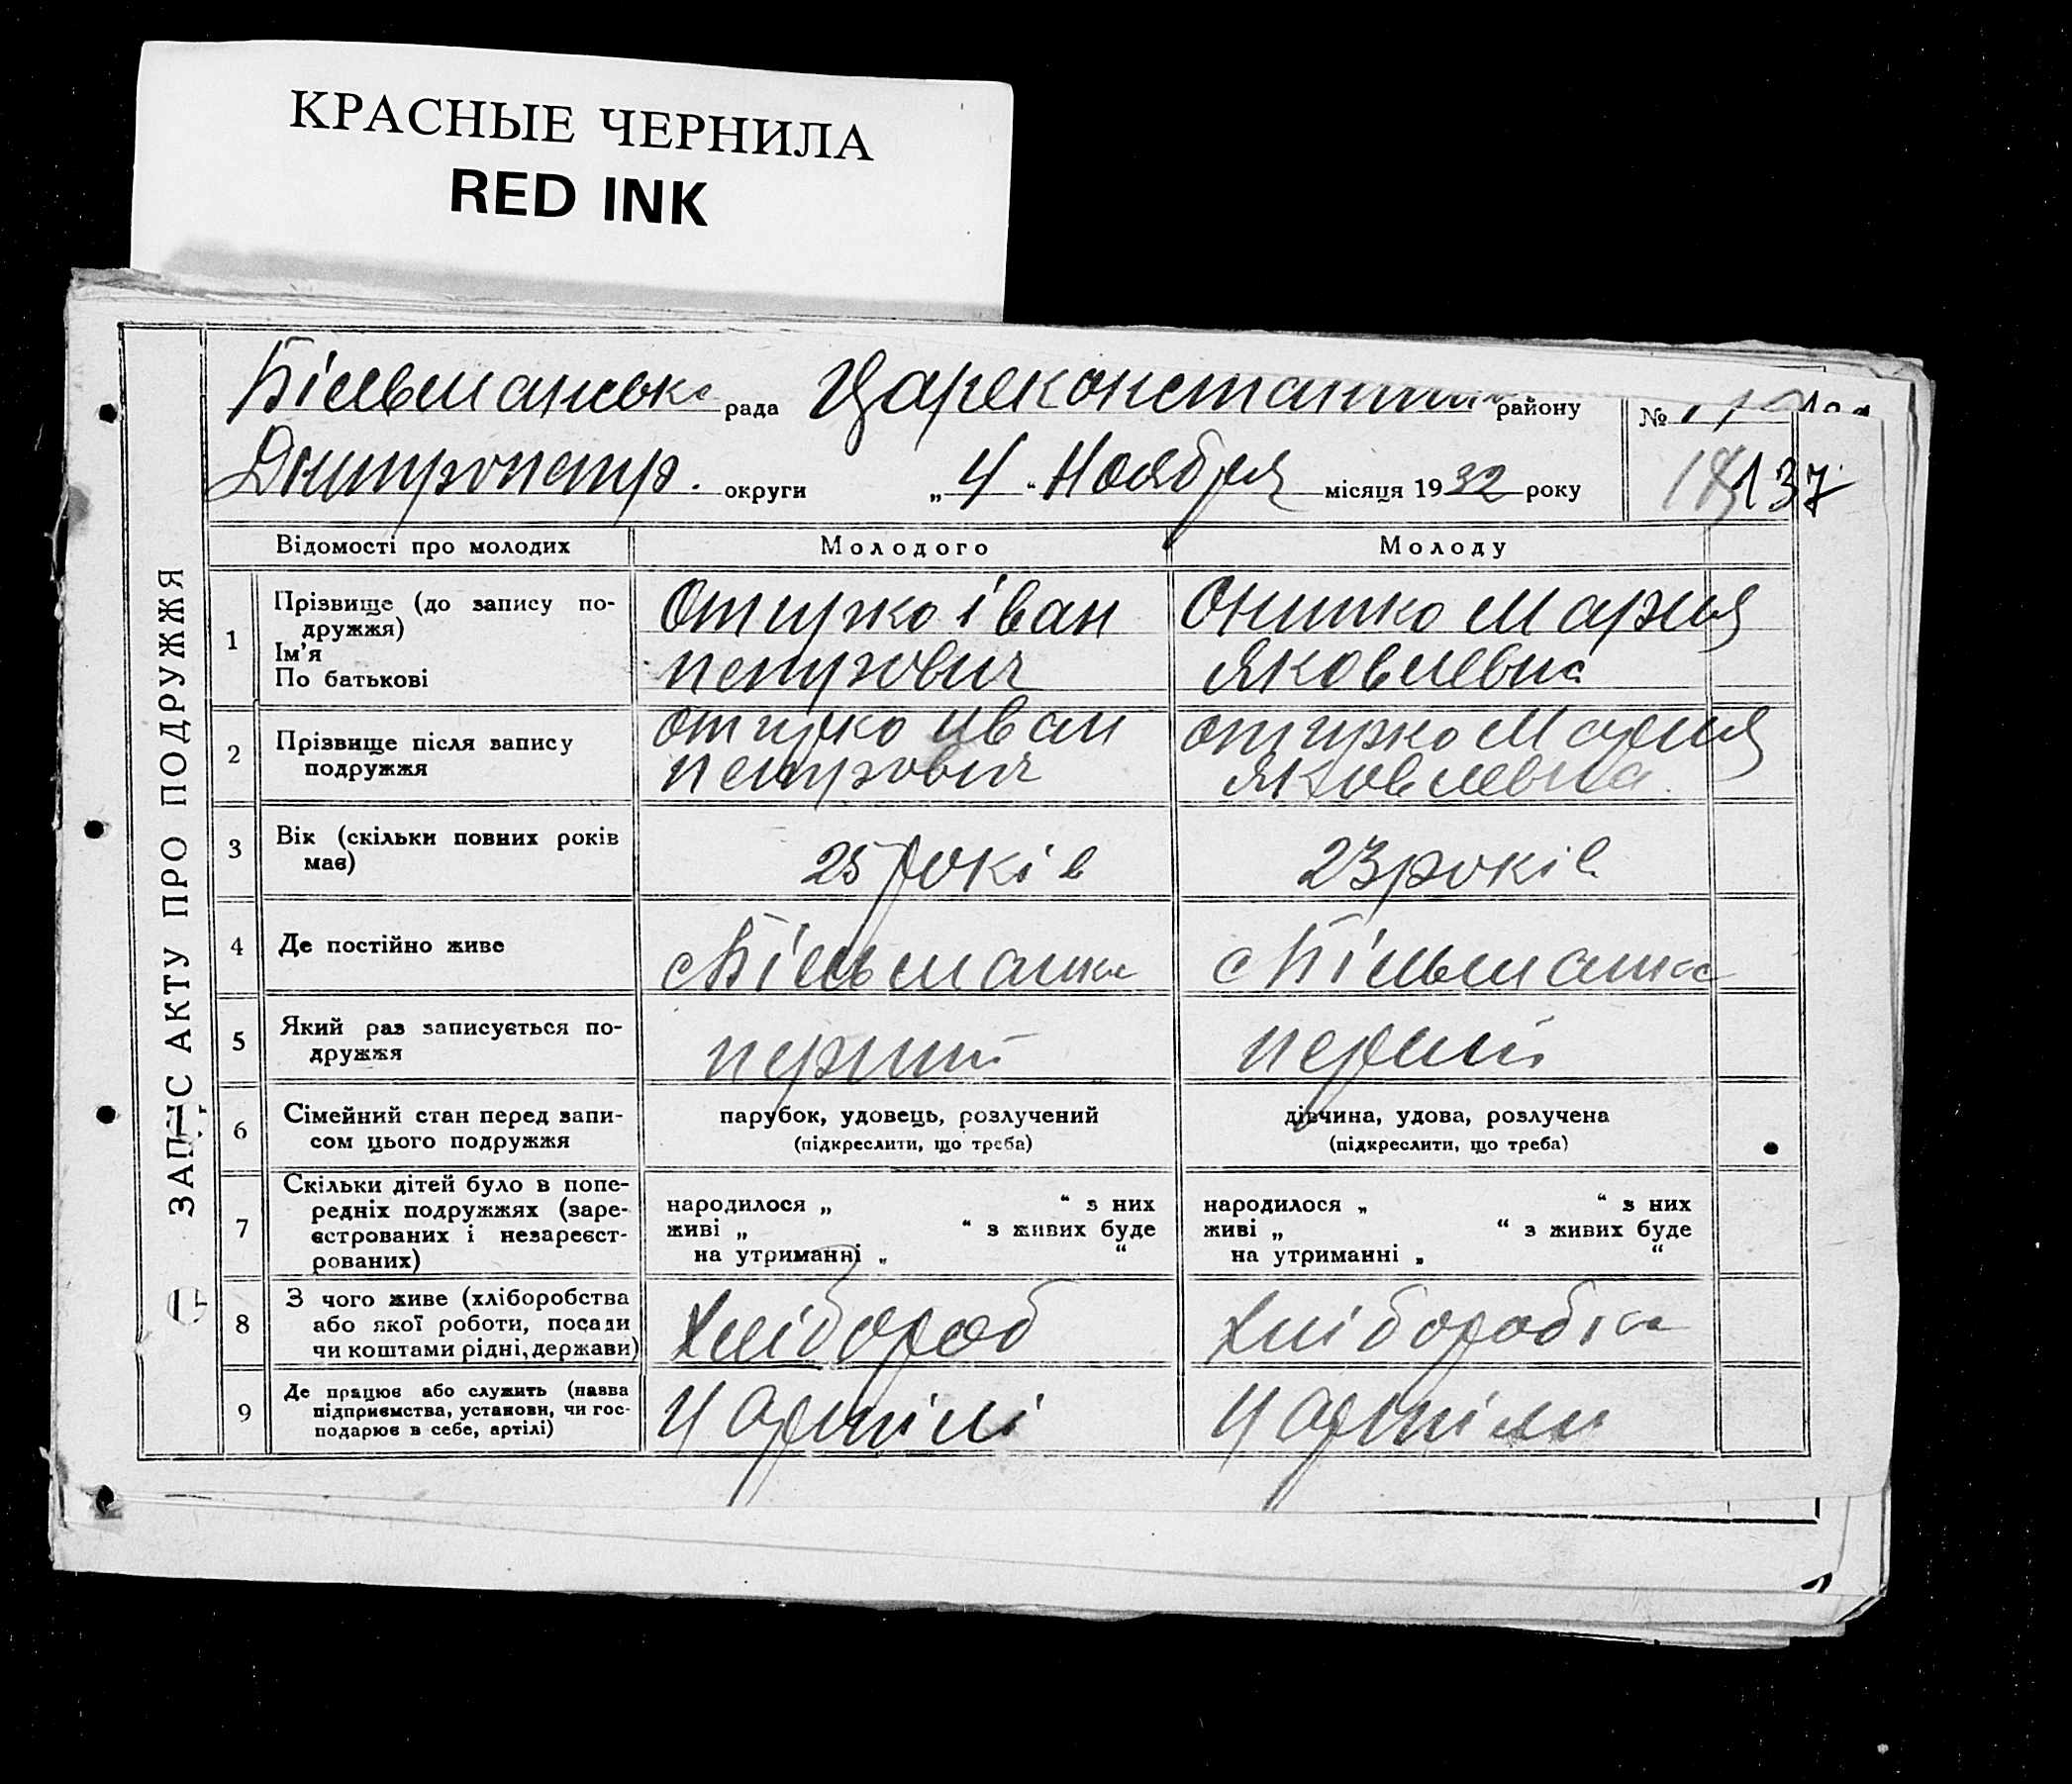 КРАСНЫЕ ЧЕРНИЛА
RED INK
ЗАПИС АКТУ ПРО ПОДРУЖЖЯ
Більманська рада Цареконстантин району №
Днитропетр. округи „4" Ноября місяця 1932 року 137
Відомості про молодих Молодого Молоду
1 Прізвище (до запису по-
дружжя)
Ім'я
По батькові
Отирко Іван
Петрович
Онишко Мария
Яковлевна
2 Прізвище після запису
подружжя
Отирко Иван
Петрович
Отирко Мария
Яковлевна
3 Вік (скільки повних років
має)
25 років
23 років
4 Де постійно живе
с Більманка
с Більманка
5 Який раз записується по-
дружжя
перший
перший
6 Сімейний стан перед запи-
сом цього подружжя
парубок, удовець, розлучений
(підкреслити, що треба)
дівчина, удова, розлучена
(підкреслити, що треба)
7 Скільки дітей було в попе-
редніх подружжях (заре-
єстрованих і незареєст-
рованих)
народилося „ “ з них
живі „ “ з живих буде
на утриманні „ “
народилося „ “ з них
живі „ “ з живих буде
на утриманні „ “
8 З чого живе (хліборобства
або якої роботи, посади
чи коштами рідні, держави)
Хлібороб
Хліборобка
9 Де працює або служить (назва
підприємства, установи, чи гос-
подарює в себе, артілі)
У артілі
У артіли